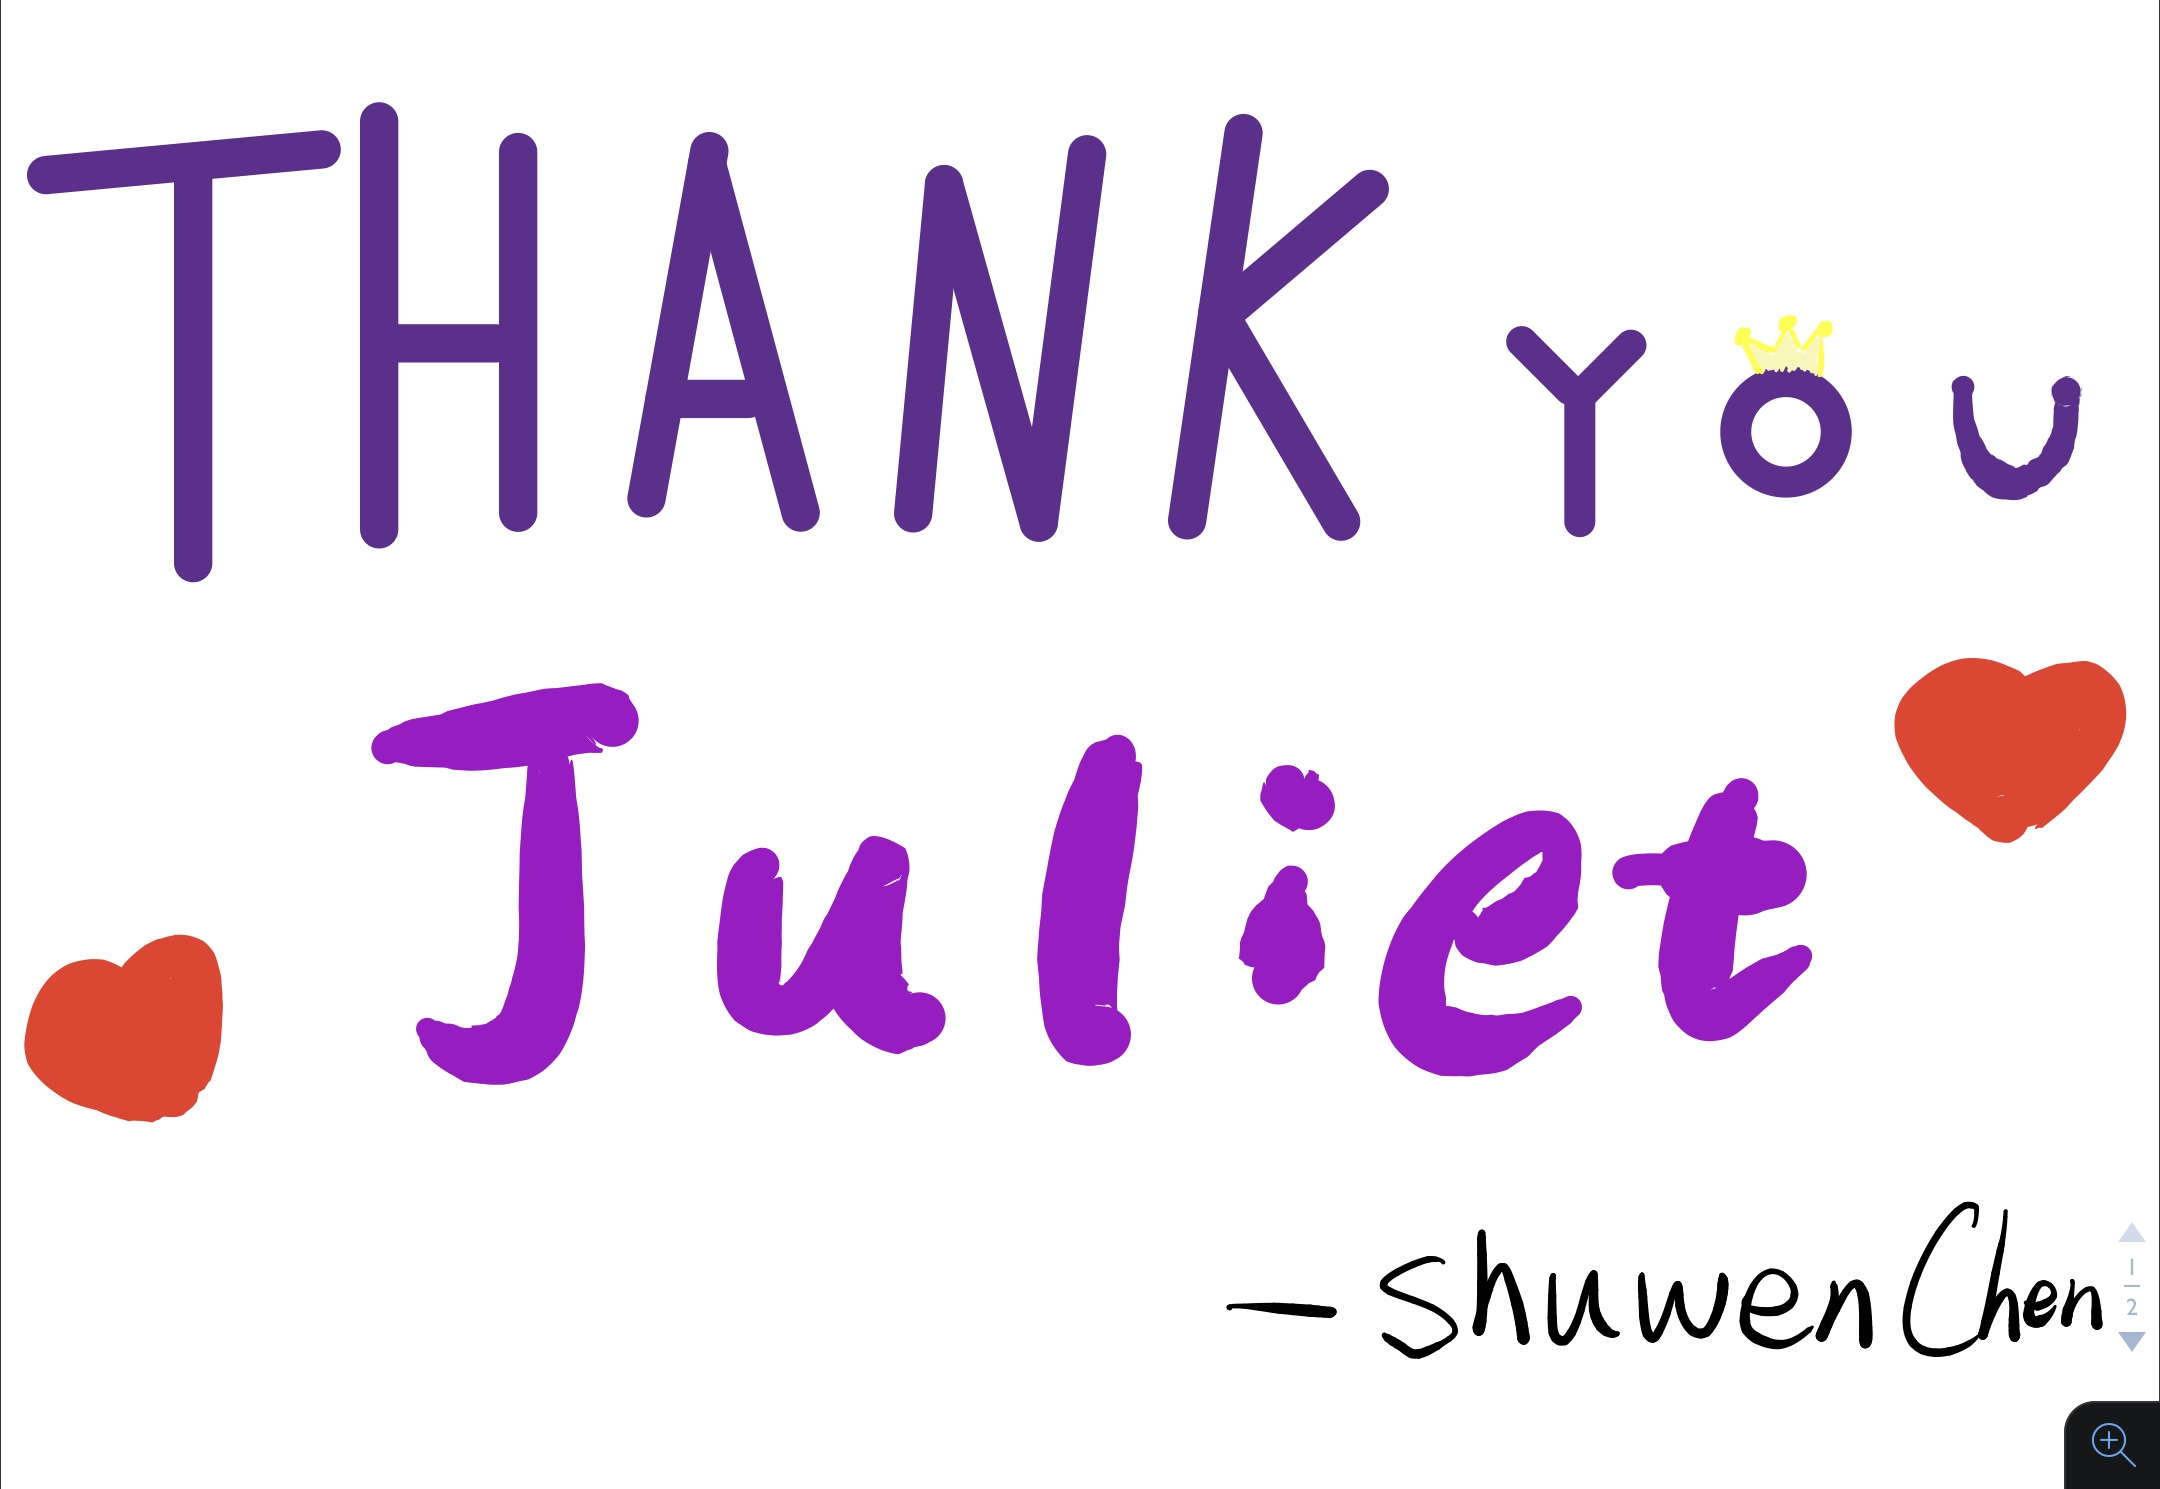 THANK YOU
Juliet
— Shuwen Chen
1
2